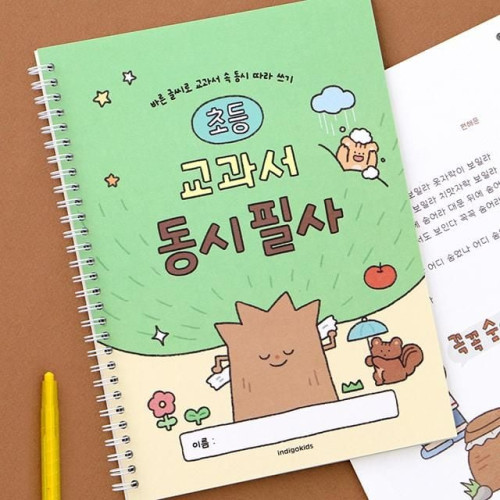 바른 글씨로 교과서 속 동시 따라 쓰기
초등
교과서
동시 필사
이름 :
indigokids
보일라 옷자락이 보일라
보일라 치맛자락 보일라
숨어라 대문 뒤에 숨어
보인다 꼭꼭 숨어라
어디 숨었니 어디 숨
꼭꼭 숨